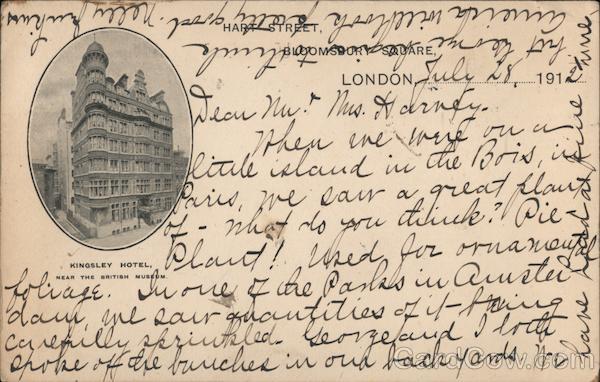 HART STREET,
BLOOMSBURY SQUARE,
LONDON, July 28, 1912
KINGSLEY HOTEL,
NEAR THE BRITISH MUSEUM.
Dear Mr. & Mrs. Harvey.
When we were on a
little island in the Bois, in
Paris, we saw a great plant
of - what do you think? Pie
Plant! Used for ornamental
foliage. In one of the Parks in Amster
dam, we saw quantities of it - being
carefully sprinkled. George and I both
spoke of the bunches in our back yards. We
have had a fine time
but home
America will look pretty good. Nelly
CardCow.com